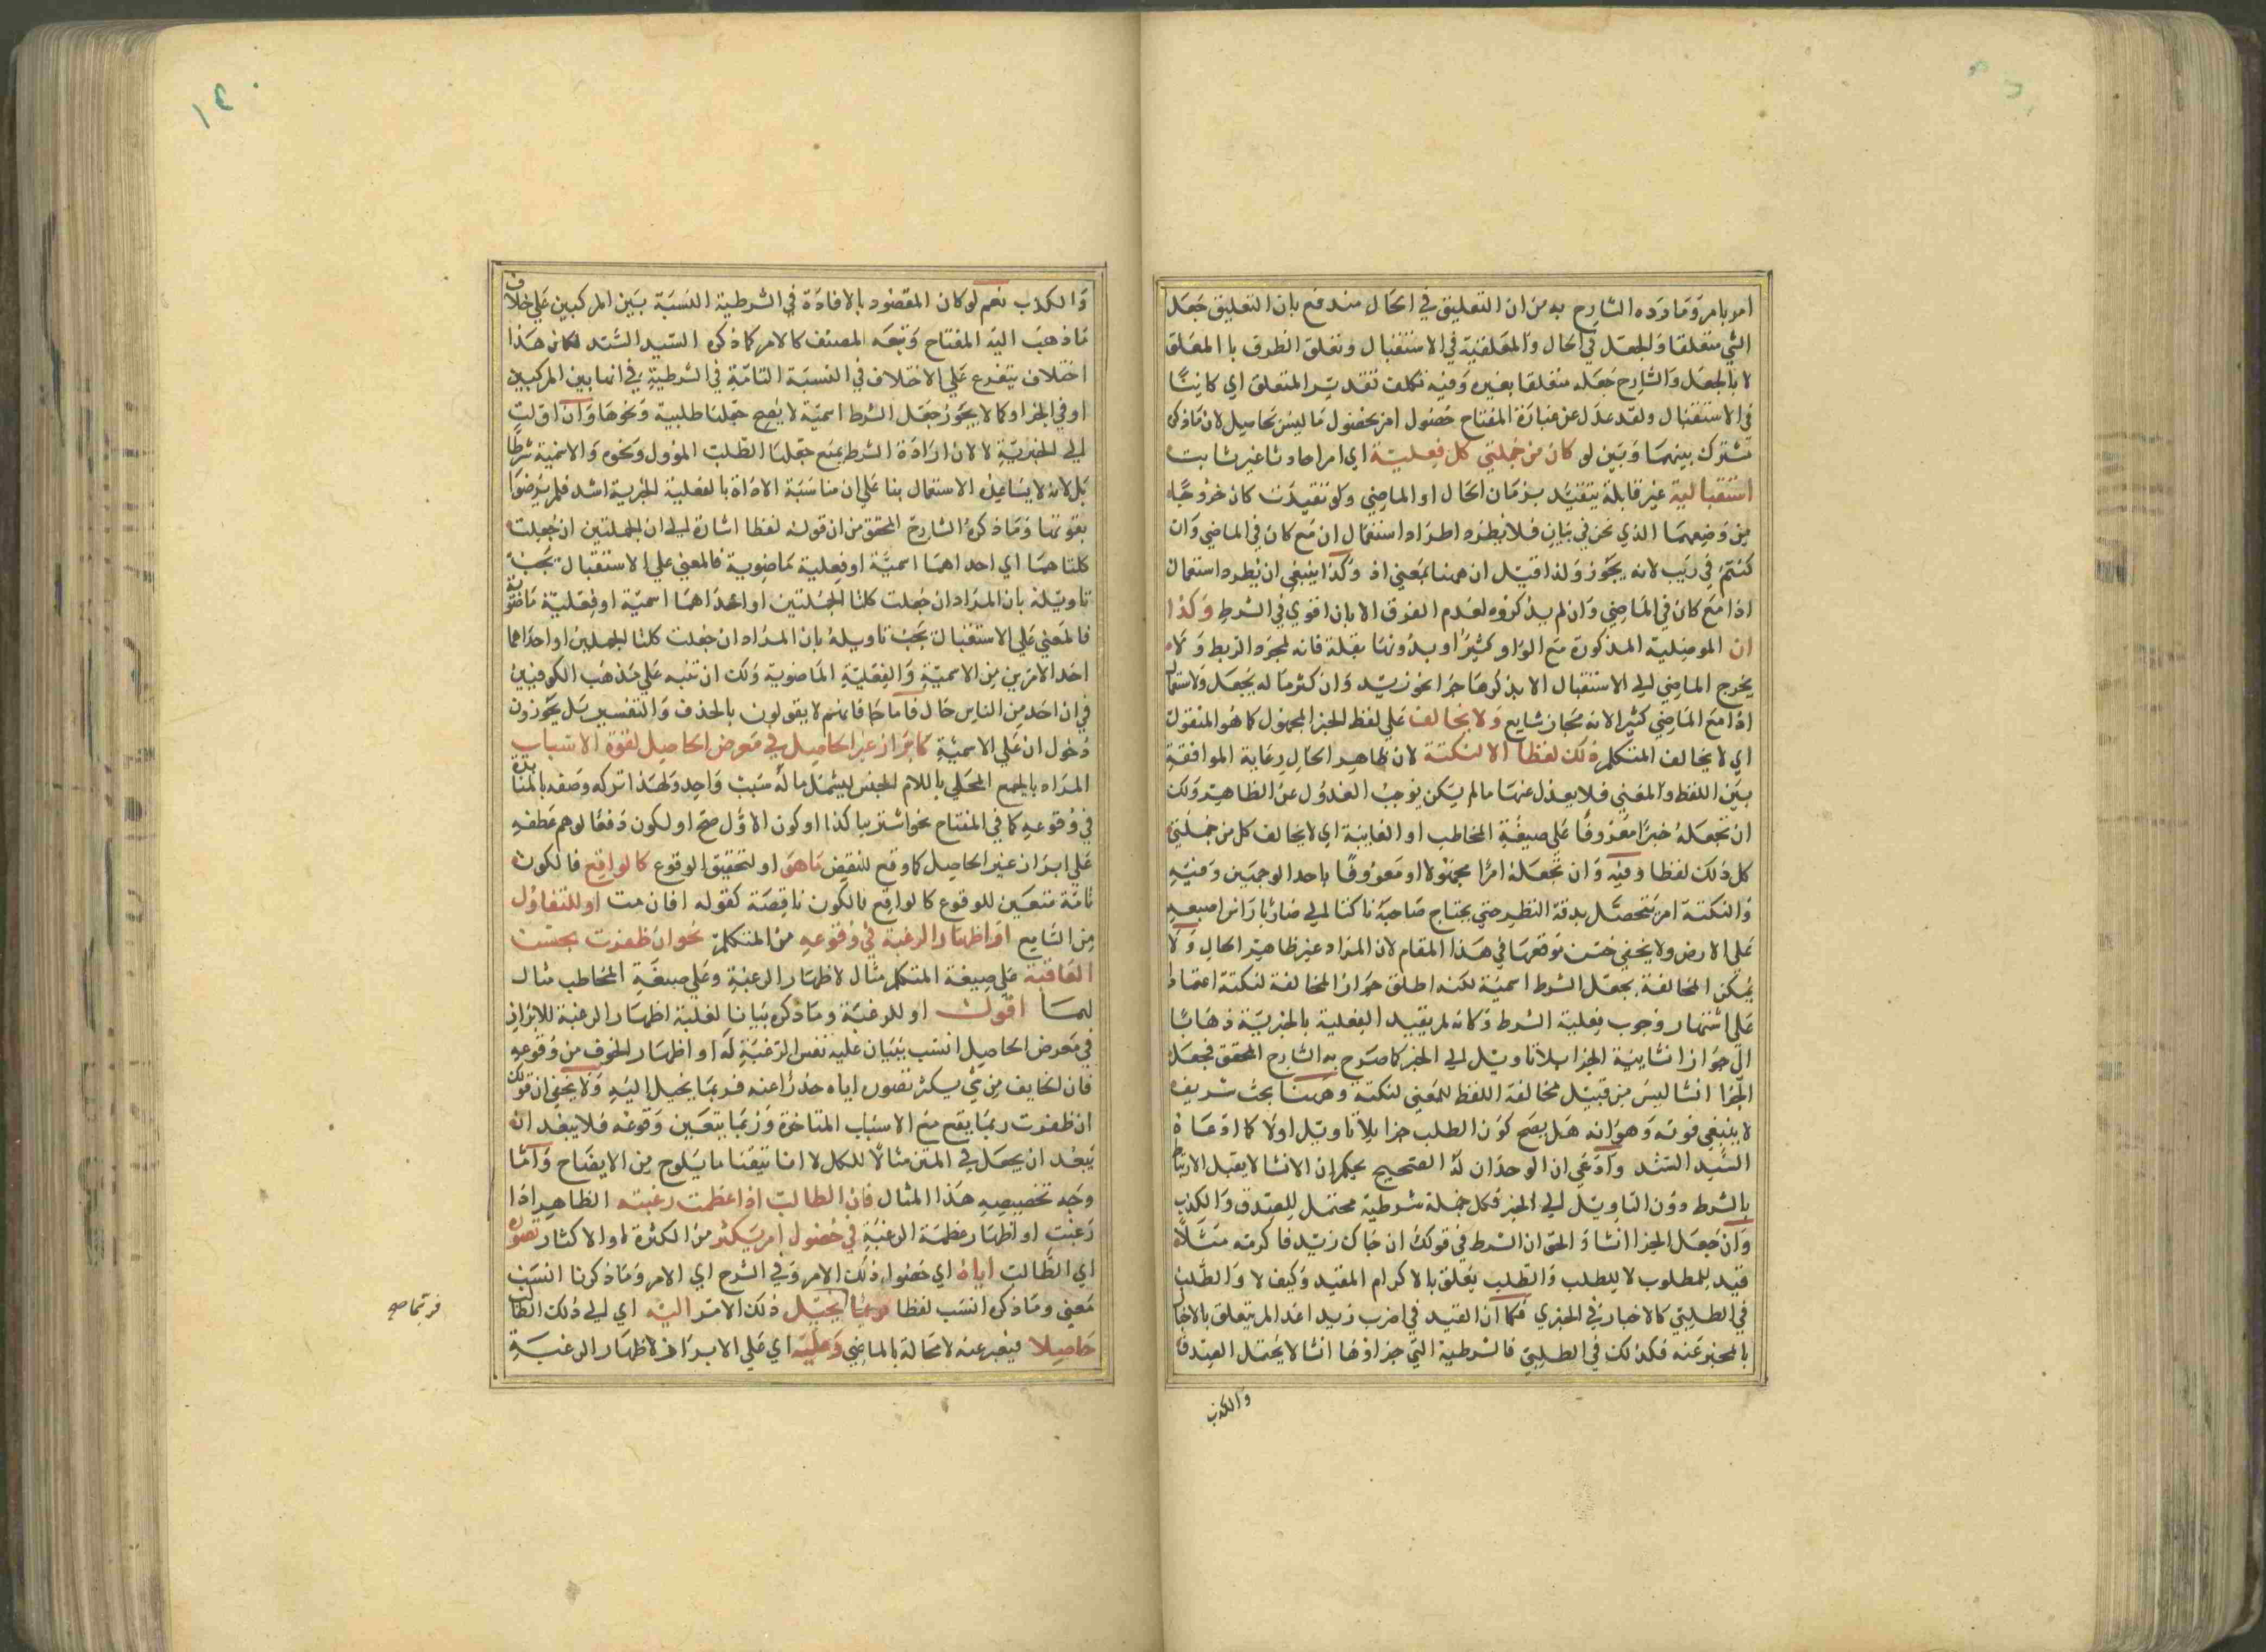 امر بامر وما رده الشارح به من ان التعليق في الحال مندفع بان التعليق جعل
الشي متعلقا والجعل في الحال والمتعلقية في الاستقبال وتعلق الظرف باالمعلق
لا بالجعل والشارح جعله متعلقا بغيره وفيه تكلف تقدير المتعلق اي كاينا
في الاستقبال ولقد عدل عن عبارة المفتاح حصول امر بحصول ما ليس بحاصل لان ما ذكر
تشترك بينهما وبين لو كان من جملتي كل فعلية اي امرا حادثا غير ثابت
استقبالية غير قابلة بتقييد بزمان الحال او الماضي ولو تقيدت كان خروجا
من وضعهما الذي نحن في بيان فلا يطرد اطراد استعمال ان مع كان في الماضي وان
كنتم في ريب لانه يجوز ولذا قيل ان ههنا بمعني اذ وكذا ينبغي ان يطرد استعمال
اذا مع كان في الماضي وان لم يذكروه لعدم الفرق الا بان اقوي في الشرط وكذا
ان الموصلية المذكورة مع الواو كثيرا وبدونها بقلة فانه لمجرد الربط ولا
يخرج الماضي الي الاستقبال الا بذكرها جزا نحو زيد وان كثر ماله بخيل ولاستعمال
اذا مع الماضي كثيرا لانه مجاز شايع ولا يخالف علي لفظ الخبر المجهول كما هو المنقول
اي لا يخالف المتكلم ذلك لفظا الا لنكتة لان ظاهر الحال رعاية الموافقة
بين اللفظ والمعني فلا يعدل عنها ما لم يكن يوجب العدول عن الظاهر ولك
ان تجعله خبرا معروفا علي صيغة المخاطب او الغايبة اي لا يخالف كل من جملتي
كل ذلك لفظا وفيه وان تجعله امرا مجهولا او معروفا باحد الوجهين وفيه
والنكتة امر يتحصل بدقة النظر حتي يحتاج صاحبه ناكتا الي ضاربا راس اصبعه
علي الارض ولا يخفي حسن موقعها في هذا المقام لان المراد غير ظاهر الحال ولا
يمكن المخالفة بجعل الشرط اسمية لكنه اطلق جواز المخالفة لنكتة اعتمادا
علي اشتهار وجوب فعلية الشرط وكانه لم يقيد الفعلية بالخبرية ذهابا
الي جواز انشايية الجزا بلا تاويل الي الخبر كما صرح به الشارح المحقق فجعل
الجزا انشا ليس من قبيل مخالفة اللفظ للمعني لنكتة وههنا بحث شريف
لا ينبغي فوته وهو انه هل يصح كون الطلب جزا بلا تاويل اولا كما ادعاه
السيد السند وادعي ان الوجدان له الصحيح يحكم ان الانشا لا يقبل الارتباط
بالشرط دون التاويل الي الخبر فكل جملة شرطية محتمل للصدق والكذب
وان جعل الجزا انشا والحق ان الشرط في قولك ان جاك زيد فاكرمه مثلا
قيد للمطلوب لا للطلب والطلب يتعلق بالاكرام المقيد وكيف لا والطلب
في الطلبي كالاخبار في الخبري فكما ان القيد في اضرب زيدا غدا لم يتعلق بالاخبار
بالمخبر عنه فكذلك في الطلبي فالشرطية التي جزاوها انشا لا يحتمل الصدق
والكذب
١٢٠
والكذب نعم لو كان المقصود بالافادة في الشرطية النسبة بين المركبين علي خلاف
ما ذهب اليه المفتاح وتبعه المصنف كالامر كما ذكره السيد السند لكان هذا
اختلاف يتفرع علي الاختلاف في النسبة التامة في الشرطية في انها بين المركبين
او في الجزا وكما لا يجوز جعل الشرط اسمية لا يصح جعلها طلبية ونحوها وان اولت
الي الخبرية لا لان ارادة الشرط يمنع جعلها الطلب الموول ونحوه والاسمية شرطا
بل لانه لا يساعده الاستعمال بنا علي ان مناسبة الاداة بالفعلية الخبرية اشد فلم يرضوا
بفوتها وما ذكره الشارح المحقق من ان قوله لفظا اشارة الي ان الجملتين ان جعلت
كلتاهما اي احداهما اسمية او فعلية ماضوية فالمعني علي الاستقبال يجب
تاويله بان المراد ان جعلت كلتا الجملتين او احداهما اسمية او فعلية ماضوية
فالمعني علي الاستقبال يجب تاويله بان المراد ان جعلت كلتا الجملتين او احداهما
احد الامرين من الاسمية والفعلية الماضوية ولك ان تنبه علي مذهب الكوفيين
في ان احد من الناس حال قاما جا فانهم لا يقولون بالحذف والتفسير بل يجوزون
دخول ان علي الاسمية كابراز غير الحاصل في معرض الحاصل لقوة الاسباب
المراد بالجمع المحلي باللام الجنس ليشمل ما له سبب واحد ولهذا تركه وصفه بالمتاخذة
في وقوعه كما في المفتاح نحو اشتريا كذا او كون الاول صح او لكون دفعا لوهم عطفه
علي ابراز غير الحاصل كما وقع للبعض ماهو او لتحقيق الوقوع كالواقع فالكون
تامة متعين للوقوع كالواقع بالكون ناقصة كقوله افان مت او للتفاول
من السامع او اظهار الرغبة في وقوعه من المتكلم نحو ان ظفرت بحسن
العاقبة علي صيغة المتكلم مثال لاظهار الرغبة وعلي صيغة المخاطب مثال
لهما اقول او للرغبة وما ذكره بيانا لغلبة اظهار الرغبة للابراز
في معرض الحاصل انسب ببيان علية نفس الرغبة له او اظهار الخوف من وقوعه
فان الخايف من شي يكثر تصوره اياه حذرا عنه فربما يخيل اليه ولا يخفي ان قولك
ان ظفرت ربما يقع مع الاسباب المتاخرة وربما يتعين وقوعه فلا يبعد ان
يبعد ان يجعل في المتن مثالا للكل لا انا تيقنا ما يلوح من الايضاح واما
وجه تخصيصه هذا المثال فان الطالب اذا عظمت رغبته الظاهر اذا
رغبت او اظهار عظمة الرغبة في حصول امر يكثر من الكثرة او الاكثار تصوره
اي الطالب اياه اي حصول ذلك الامر وفي الشرح اي الامر وما ذكرنا انسب
معني وما ذكره انسب لفظا فربما يخيل ذلك الامر اليه اي الي ذلك الطالب
حاصلا فيعبر عنه لا محالة بالماضي وعليه اي علي الابراز لاظهار الرغبة